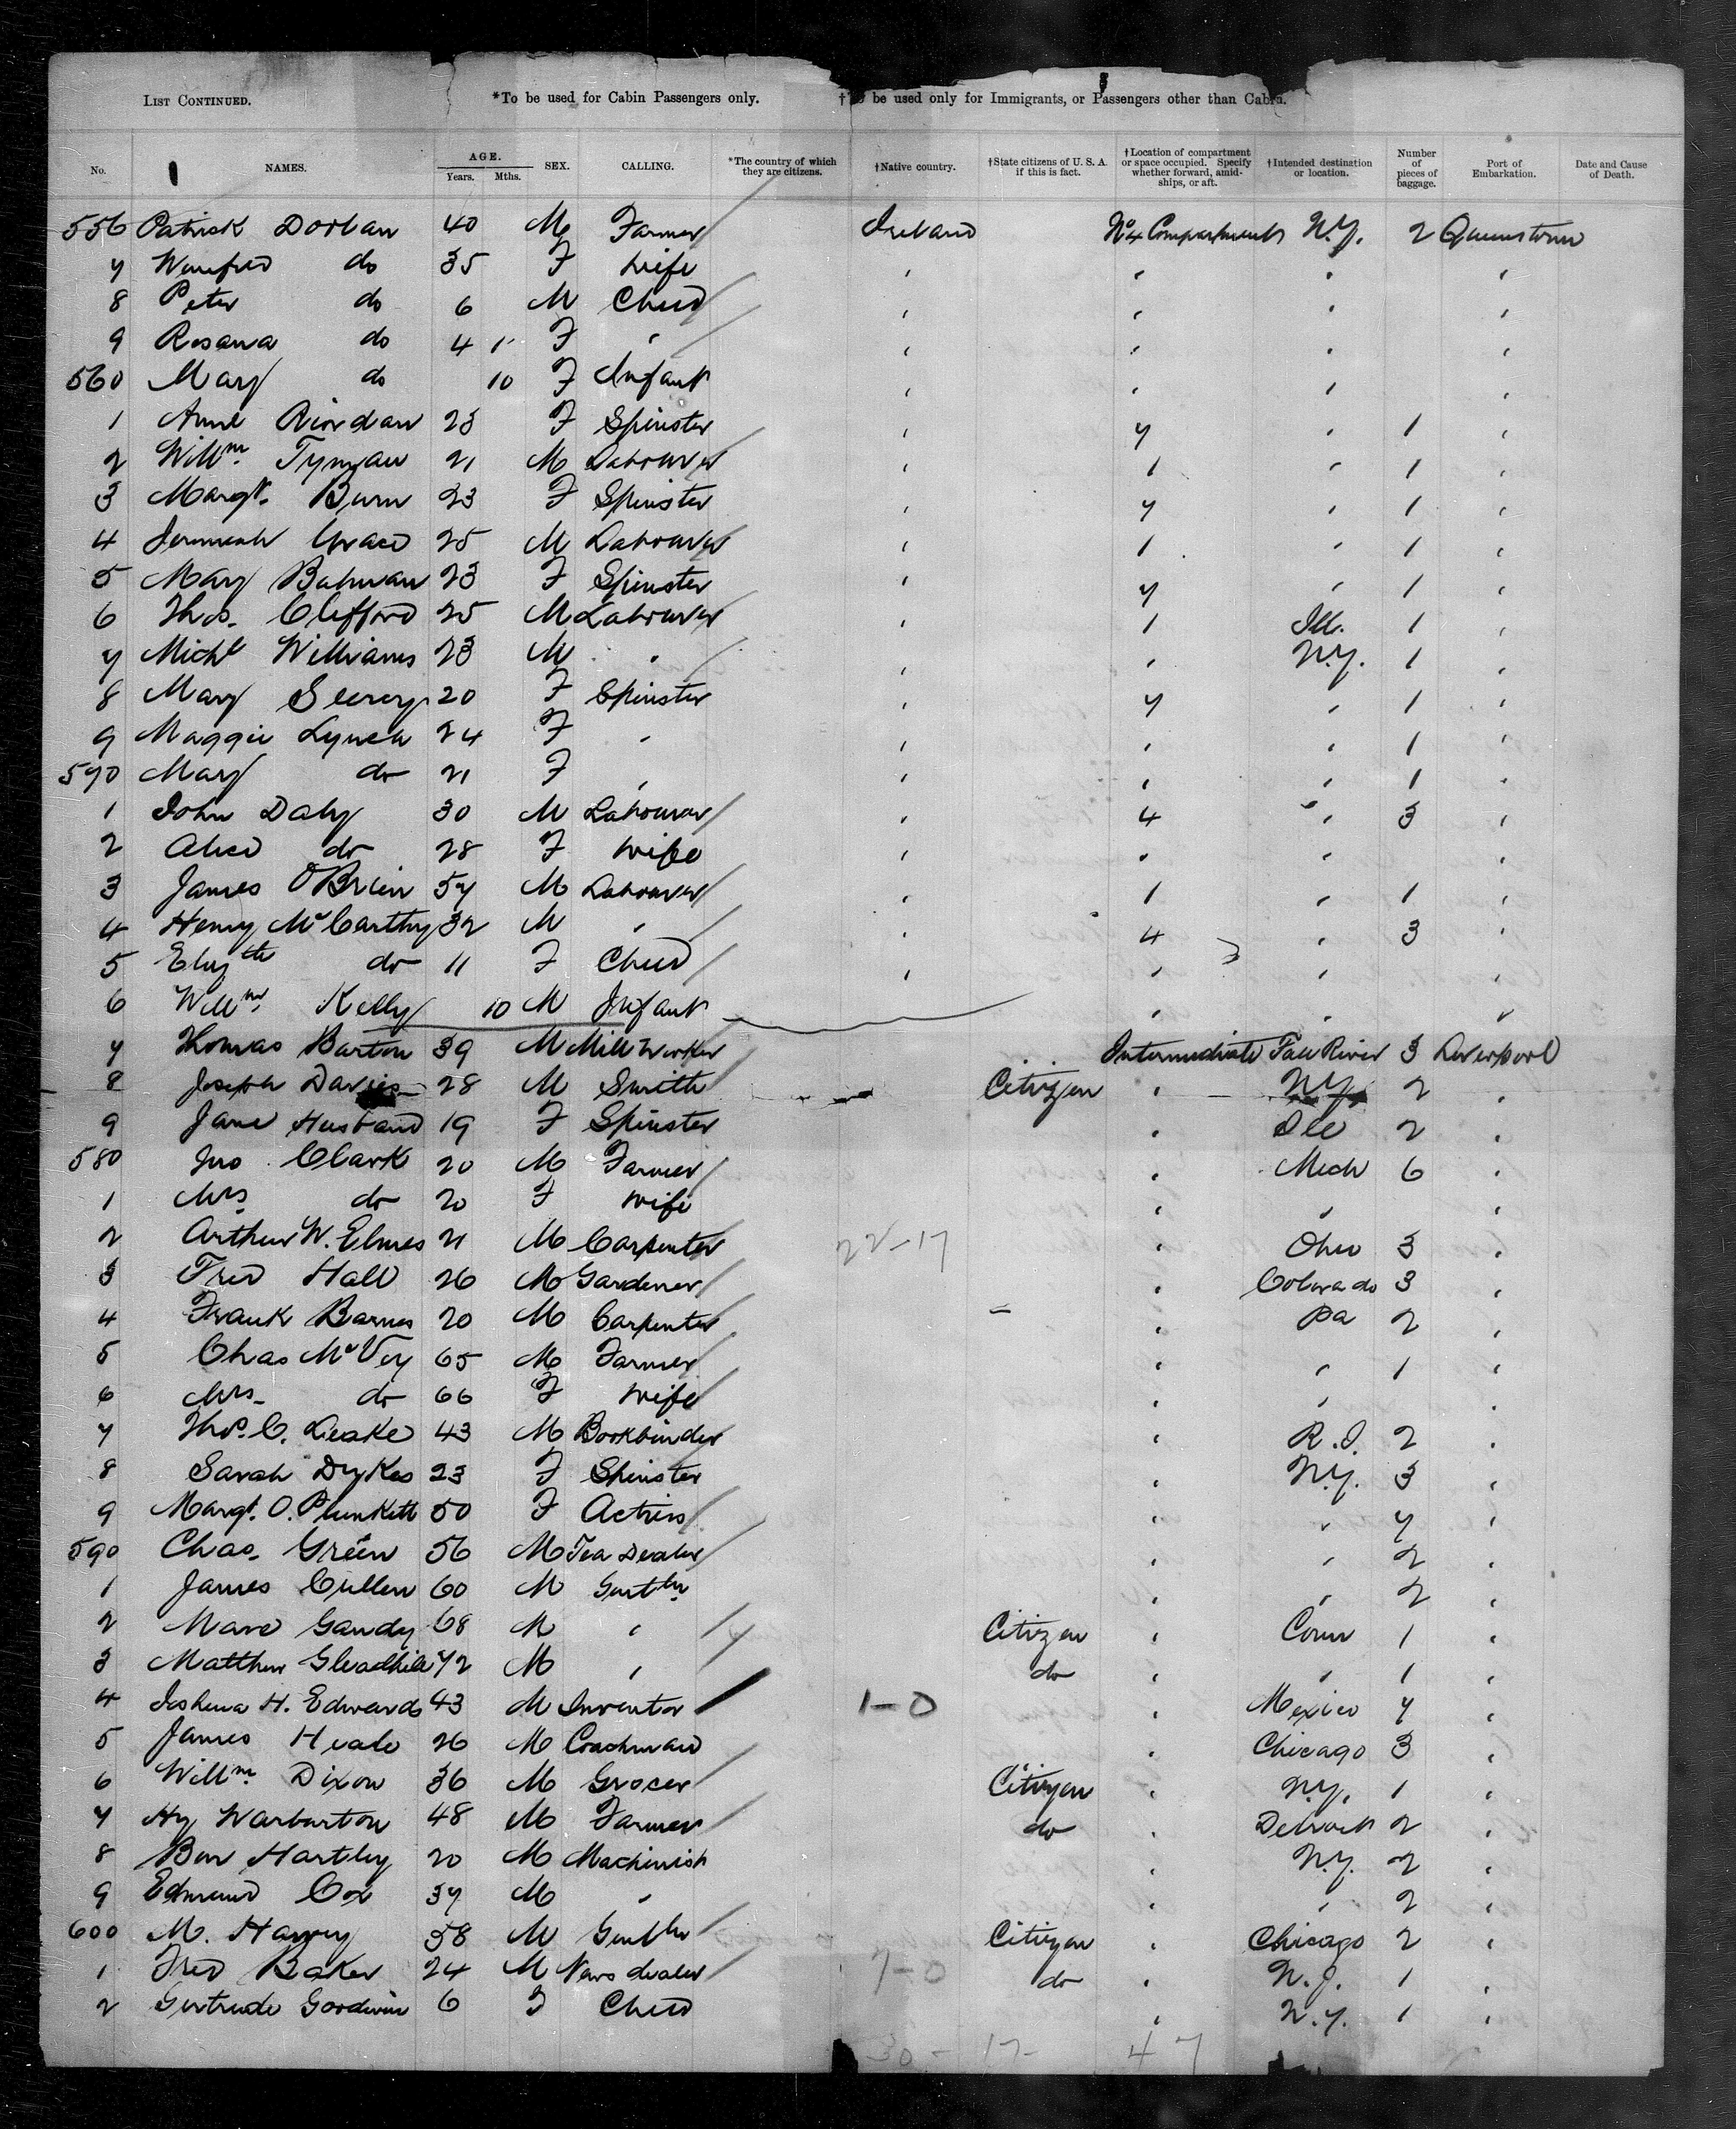 LIST CONTINUED. *To be used for Cabin Passengers only. † be used only for Immigrants, or Passengers other than Cabin.
No. NAMES. AGE. Years. Mths. SEX. CALLING. *The country of which they are citizens. †Native country. †State citizens of U. S. A. if this is fact. †Location of compartment or space occupied. Specify whether forward, amid-ships, or aft. †Intended destination or location. Number of pieces of baggage. Port of Embarkation. Date and Cause of Death.
556 Patrick 40 M Farmer Ireland No 4 Compartment N.Y. 2 Queenstown
7 Winifred do 35 F Wife " " " "
8 Peter do 6 M Child " " " "
9 Rosana do 4 F " " " " "
560 Mary do 10 F Infant " " " "
1 Anne Riordan 23 F Spinster " 7 " 1 "
2 Willm. Tynan 21 M Labourer " 1 " 1 "
3 Margt. Burn 23 F Spinster " 7 " 1 "
4 Jeremiah Grace 25 M Labourer " 1 " 1 "
5 Mary 23 F Spinster " 7 " 1 "
6 Thos. Clifford 25 M Labourer " 1 Ill. 1 "
7 Michl Williams 23 M " " " N.Y. 1 "
8 Mary 20 F Spinster " 7 " 1 "
9 Maggie Lynch 24 F " " " " 1 "
570 Mary do 21 F " " " " 1 "
1 John Daly 30 M Labourer " 4 " 3 "
2 Alice do 28 F Wife " " " "
3 James O'Brien 57 M Labourer " 1 " 1 "
4 Henry McCarthy 32 M " " 4 " 3 "
5 Elizth do 11 F Child " " " "
6 Willm. Kelly 10 M Infant " " "
7 Thomas Barton 39 M Mill Worker Intermediate Fall River 3 Liverpool
8 Joseph Davies 28 M Smith Citizen " N.Y. 2 "
9 Jane Husband 19 F Spinster " Ill 2 "
580 Jno Clark 20 M Farmer " Mich 6 "
1 Mrs do 20 F Wife " " "
2 Arthur W. Elmes 21 M Carpenter 22-17 " Ohio 3 "
3 Fred Hall 26 M Gardener " Colorado 3 "
4 Frank Barnes 20 M Carpenter " Pa 2 "
5 Chas McVey 65 M Farmer " " 1 "
6 Mrs. do 66 F Wife " " "
7 Thos. C. Leake 43 M Bookbinder " R.I. 2 "
8 Sarah Dykes 23 F Spinster " N.Y. 3 "
9 Margt. O. Plunkett 50 F Actress " " 7 "
590 Chas. Green 56 M Tea Dealer " " 2 "
1 James Cullen 60 M Gentln " " 2 "
2 Gandy 68 M " Citizen " Conn 1 "
3 Matthew Gleadhill 72 M " do " " 1 "
4 Joshua H. Edwards 43 M Inventor 1-0 " Mexico 7 "
5 James Heale 26 M Coachman " Chicago 3 "
6 Willm. Dixon 36 M Grocer Citizen " N.Y. 1 "
7 Hy Warburton 48 M Farmer do " Detroit 2 "
8 Ben Hartley 20 M Machinist " N.Y. 2 "
9 Edmund Cox 37 M " " " 2 "
600 M. Harvey 58 M Gentln Citizen " Chicago 2 "
1 Fred Baker 24 M News dealer 7-0 do " N.J. 1 "
2 Gertrude Goodwin 6 F Child " N.Y. 1 "
30 - 17- 47